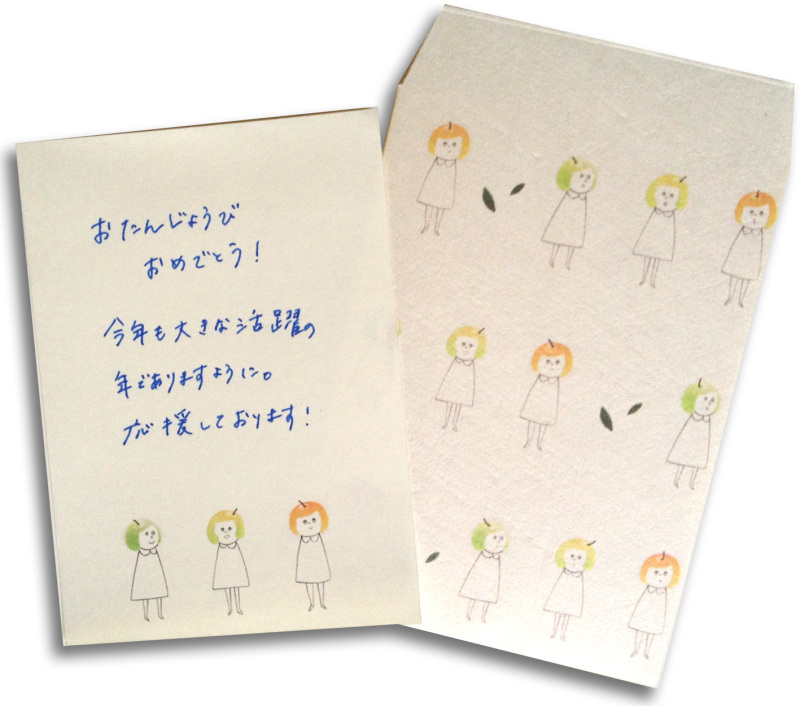 おたんじょうび
おめでとう!
今年も大きな活躍の
年でありますように。
応援しております!